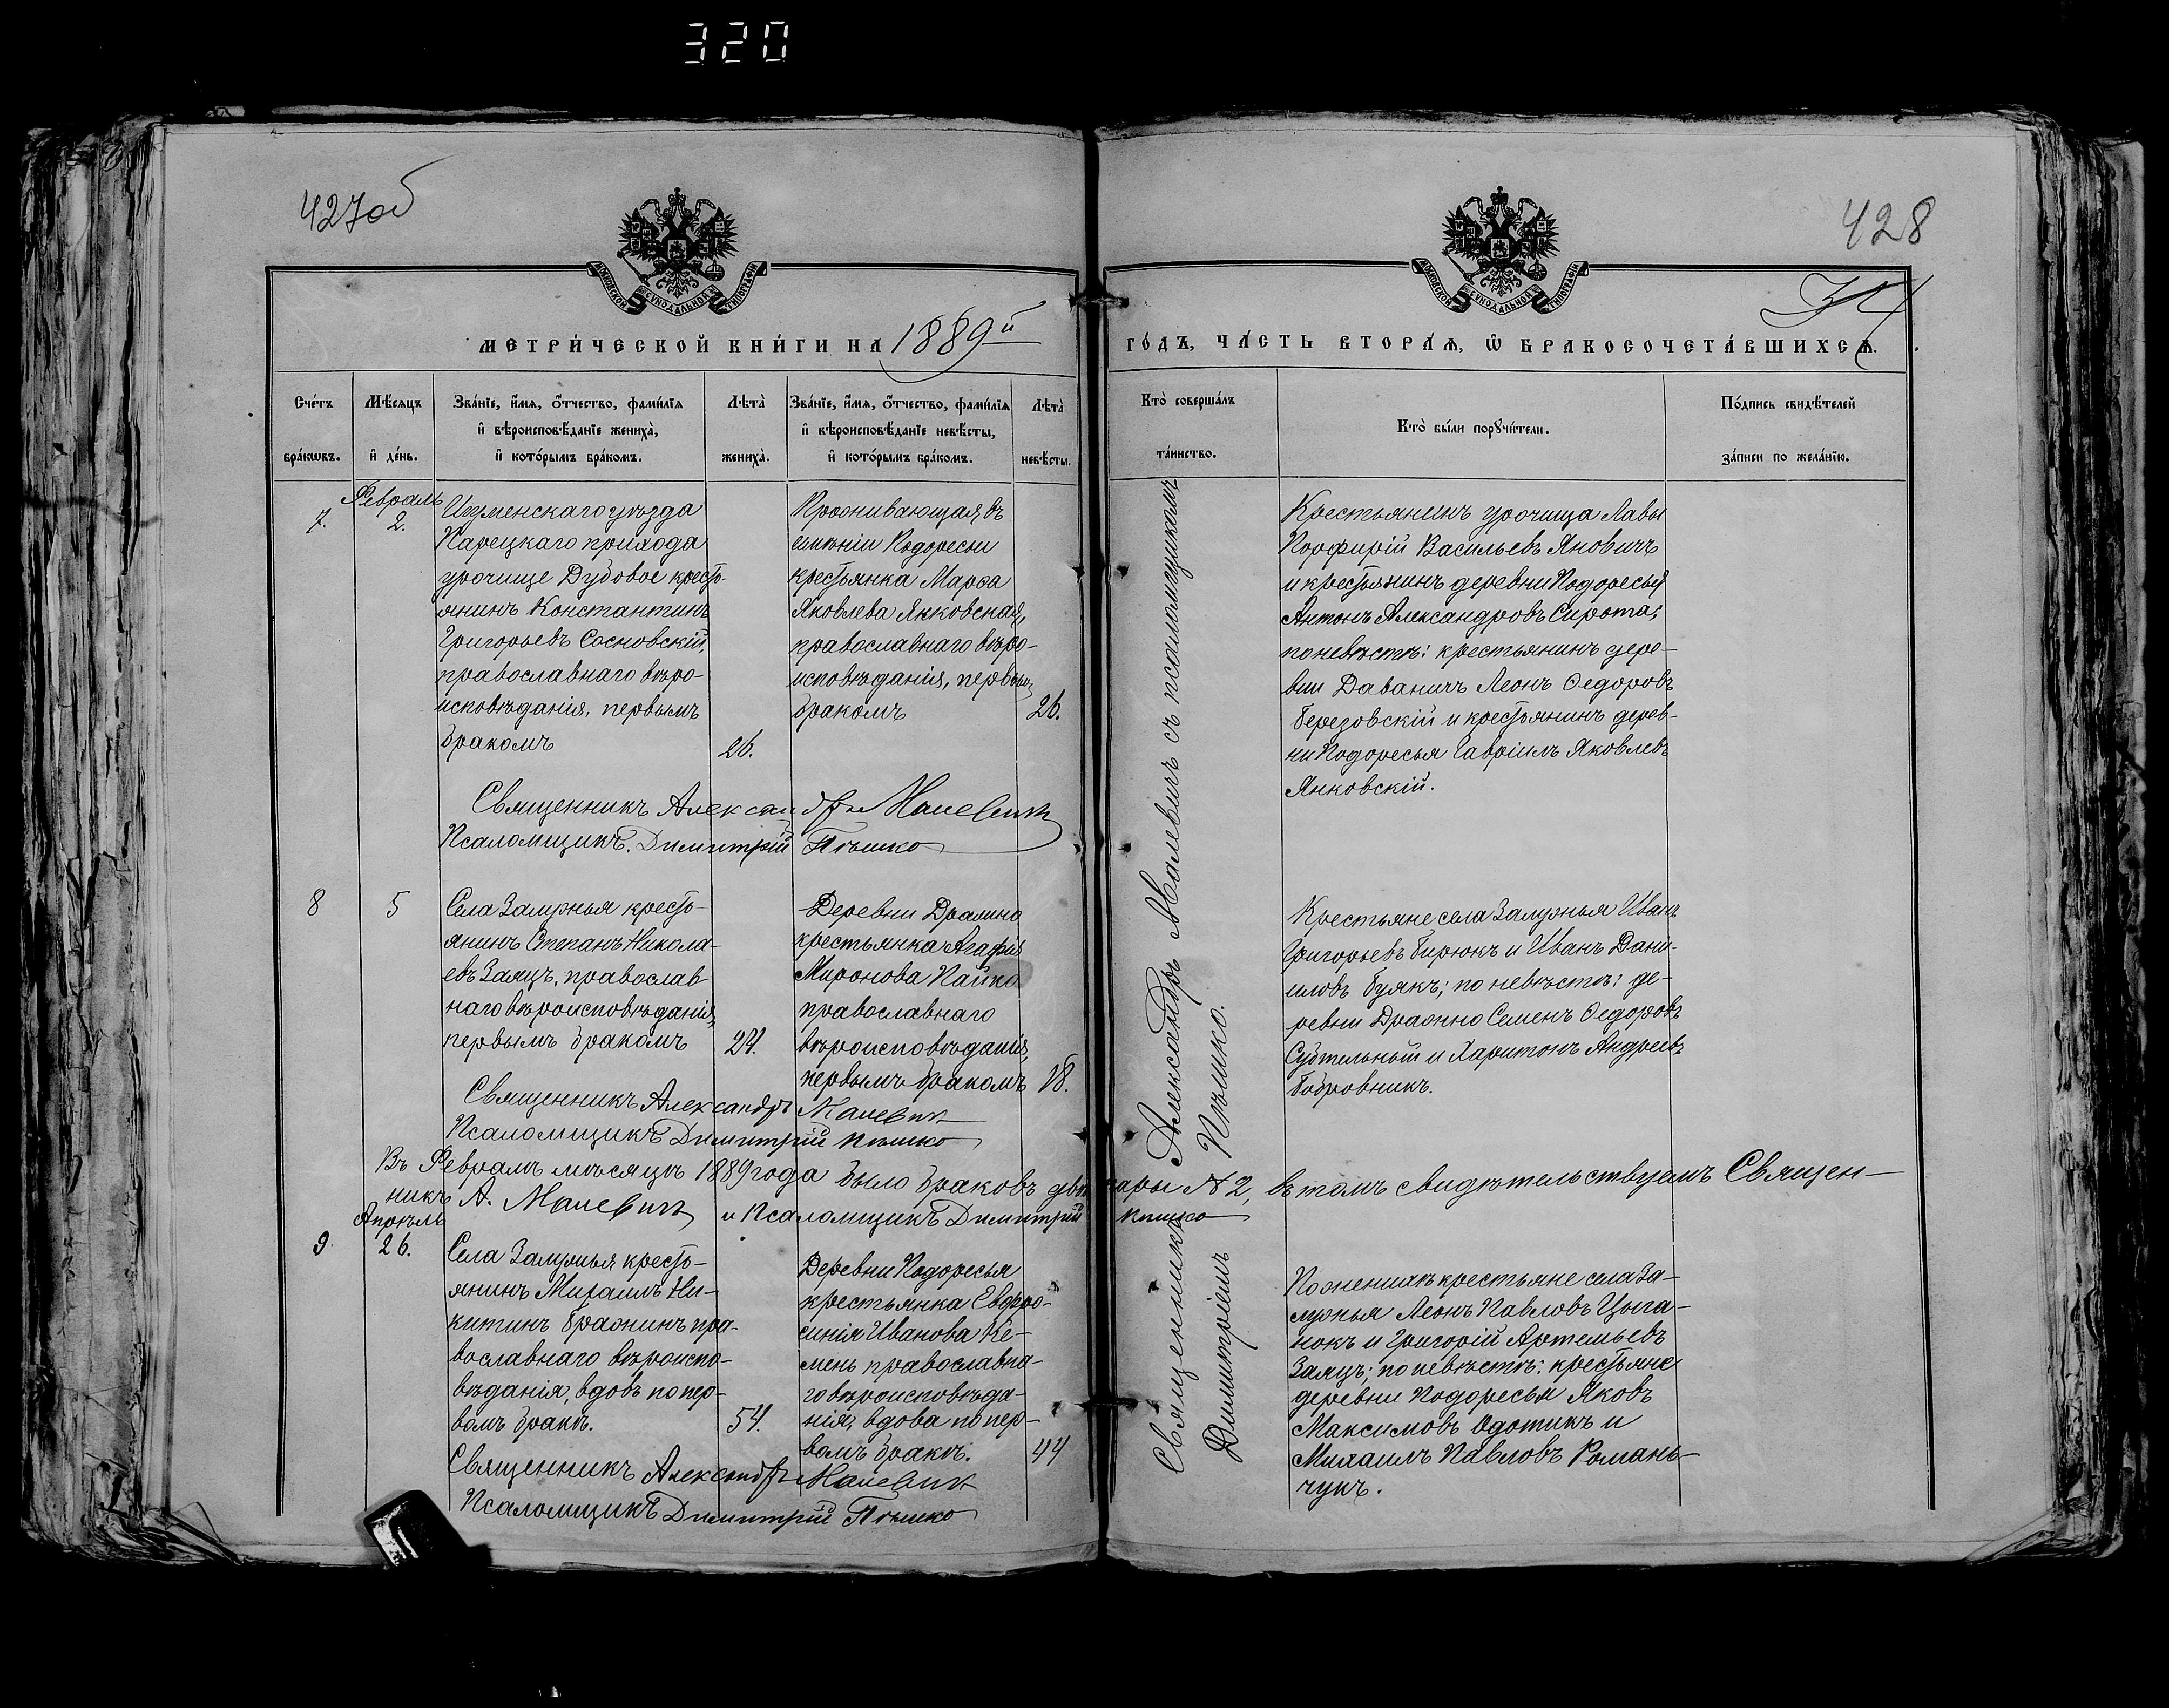 320
427об
428
34
МОСКОВСКОЙ СУНОДАЛЬНОЙ ТИПОГРАФІИ
МОСКОВСКОЙ СУНОДАЛЬНОЙ ТИПОГРАФІИ
МЕТРИ́ЧЕСКОЙ КНИ́ГИ НА 1889й ГО́ДЪ, ЧА́СТЬ ВТОРА́Я, Ѡ БРАКОСОЧЕТА́ВШИХСЯ.
Сче́тъ бра́кѡвъ.
Мѣ́сяцъ и де́нь.
Зва́нїе, и́мя, о́тчество, фами́лїя
и вѣроисповѣ́данїе жениха̀,
и кото́рымъ бра́комъ.
Лѣта̀ жениха̀.
Зва́нїе, и́мя, о́тчество, фами́лїя
и вѣроисповѣ́данїе невѣ́сты,
и кото́рымъ бра́комъ.
Лѣта̀ невѣ́сты.
Кто̀ соверша́лъ
та́инство.
Кто̀ бы́ли поруⷱ҇и́тели.
По́дпись свидѣ́телей
за́писи по жела́нїю.
Февраль
7. 2.
Игуменскаго уѣзда
Нарецкаго прихода
урочище Дубовое кресть-
янинъ Константинъ
Григорьевъ Сосновскій,
православнаго вѣро-
исповѣданія, первымъ
бракомъ 26.
Проживающая въ
имѣніи Подоресьи
крестьянка Марѳа
Яковлева Янковская,
православнаго вѣро-
исповѣданія, первымъ
бракомъ 26.
Крестьянинъ урочища Лавы
Порфирій Васильевъ Яновичъ
и крестьянинъ деревни Подоресья
Антонъ Александровъ Сирота;
по невѣстѣ: крестьянинъ дере-
вни Даваничъ Леонъ Ѳедоровъ
Березовскій и крестьянинъ дерев-
ни Подоресья Гавріилъ Яковлевъ
Янковскій.
Священникъ Александръ Малевичъ
Псаломщикъ Димитрій Пѣшко
8 5
Села Залужья кресть-
янинъ Степанъ Никола-
евъ Заяцъ, православ
наго вѣроисповѣданія,
первымъ бракомъ 24.
Деревни Дражно
крестьянка Агафія
Миронова Пайко
православнаго
вѣроисповѣданія,
первымъ бракомъ 18.
Крестьяне села Залужья Иванъ
Григорьевъ Бирюкъ и Иванъ Дани-
иловъ Буякъ; по невѣстѣ: де-
ревни Дражно Семенъ Ѳедоровъ
Субтельный и Харитонъ Андреевъ
Бобровникъ.
Священникъ Александръ Малевичъ
Псаломщикъ Димитрій Пѣшко
Въ Февралѣ мѣсяцѣ 1889 года было браковъ двѣ пары № 2, въ томъ свидѣтельствуемъ Священ-
никъ А. Малевичъ и Псаломщикъ Димитрій Пѣшко
Апрѣль
9. 26.
Села Залужья кресть-
янинъ Михаилъ Ни-
китинъ Бражникъ пра-
вославнаго вѣроиспо-
вѣданія, вдовъ по пер-
вомъ бракѣ. 54.
Деревни Подоресья
крестьянка Евфро-
синія Иванова Ке-
мень православна-
го вѣроисповѣда-
нія, вдова по пер-
вомъ бракѣ. 44
По женихѣ крестьяне села За-
лужья Леонъ Павловъ Цыга-
нокъ и Григорій Артемьевъ
Заяцъ; по невѣстѣ: крестьяне
деревни Подоресья Яковъ
Максимовъ Одотикъ и
Михаилъ Павловъ Романь-
чукъ.
Священникъ Александръ Малевичъ
Псаломщикъ Димитрій Пѣшко
Священникъ Александръ Малевичъ съ псаломщикомъ
Димитріемъ Пѣшко.